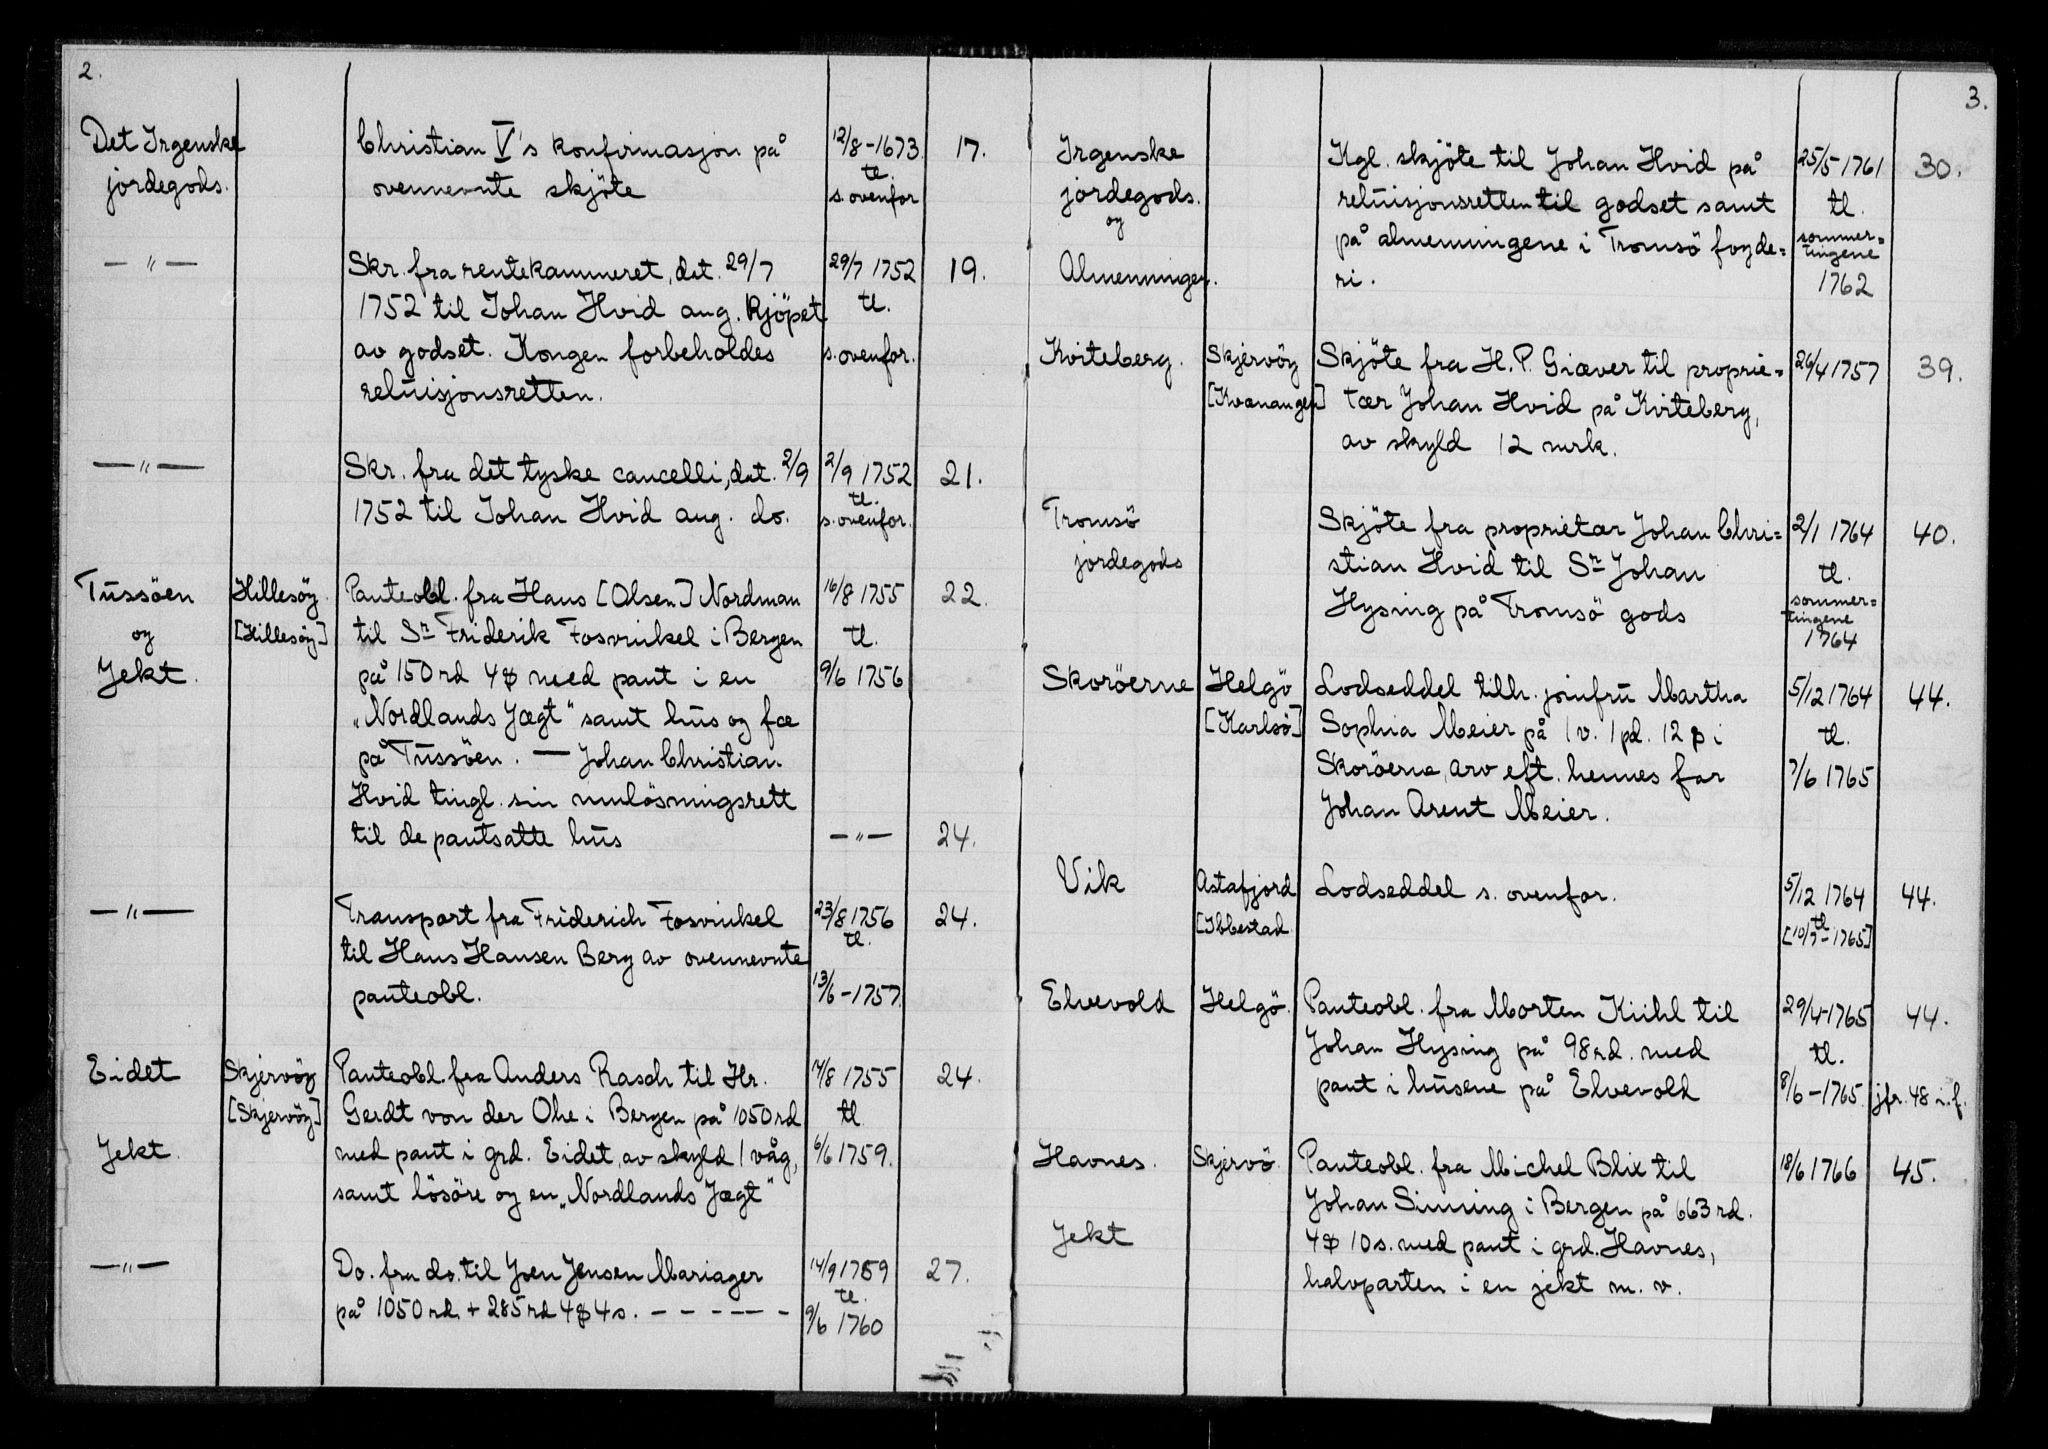 2.
Det Irgenske jordegods. Christian V's konfirmasjon på 12/8-1673 17.
ovennevnte skjöte tl. s. ovenfor
—"— Skr. fra rentekammeret, dat. 29/7 29/7 1752 19.
1752 til Johan Hvid ang. kjöpet tl.
av godset. Kongen forbeholdes s. ovenfor.
reluisjonsretten.
—"— Skr. fra det tyske cancelli, dat. 2/9 2/9 1752 21.
1752 til Johan Hvid ang. do. tl. s. ovenfor.
Tussöen Hillesöy Panteobl. fra Hans [Olsen] Nordman 16/8 1755 22.
og [Hillesöy] til Sr. Friderik Fosvinkel i Bergen tl.
Jekt. på 150 rd 4 ꝑ med pant i en 9/6 1756
„Nordlands Jægt" samt hus og fæ
på Tussöen. — Johan Christian
Hvid tingl. sin innlösningsrett
til de pantsatte hus —"— 24.
—"— Transport fra Friderich Fosvinkel 23/8 1756 24.
til Hans Hansen Berg av ovennevnte tl.
panteobl. 13/6-1757.
Eidet Skjervöy Panteobl. fra Anders Rasch til Hr. 14/8 1755 24.
[Skjervöy] Gerdt von der Ohe i Bergen på 1050 rd tl.
Jekt. med pant i grd. Eidet, av skyld 1 våg, 6/6 1759.
samt lösöre og en „Nordlands Jægt"
—"— Do. fra do. til Joen Jensen Mariager 14/9 1759 27.
på 1050 rd. + 285 rd 4 ꝑ 4 s. - - - - - - tl.
9/6 1760
3.
Irgenske Kgl. skjöte til Johan Hvid på 25/5 1761 30.
jordegods. reluisjonsretten til godset samt tl.
og på almenningene i Tromsö fogde= sommer=
tingene
Almenningen. ri. 1762
Kviteberg. Skjervöy Skjöte fra H. P. Giæver til proprie= 26/4 1757 39.
[Kvænangen] tær Johan Hvid på Kviteberg,
av skyld 12 mrk.
Tromsö Skjöte fra proprietær Johan Chri= 2/1 1764 40.
jordegods stian Hvid til Sr. Johan tl.
Hysing på Tromsö gods sommer=
tingene
1764
Skoröerne Helgö Lodseddel tilh. jomfru Martha 5/12 1764 44.
[Karlsö] Sophia Meier på 1 v. 1 pd. 12 ꝑ i tl.
Skoröerne, arv eft. hennes far 7/6 1765
Johan Arent Meier.
Vik Astafjord Lodseddel s. ovenfor. 5/12 1764 44.
[Ibbestad tl.
[10/7-1765]
Elvevold Helgö. Panteobl. fra Morten Kiihl til 29/4-1765 44.
Johan Hysing på 98 rd. med tl.
pant i husene på Elvevold 8/6-1765. jfr. 48 i. f.
Havnes. Skjervö. Panteobl. fra Michel Blix til 18/6 1766 45.
Johan Sinning i Bergen på 663 rd.
Jekt 4 ꝑ 10 s. med pant i grd. Havnes,
halvparten i en jekt m. v.